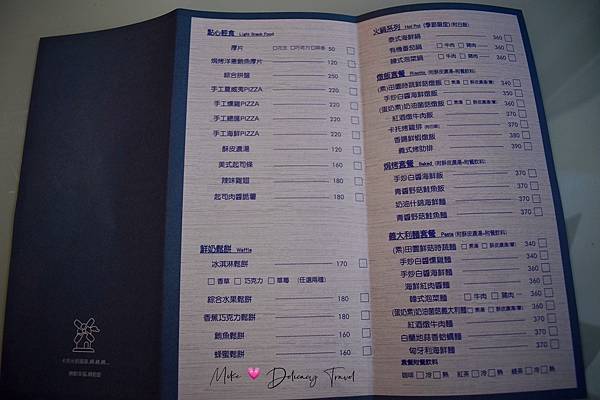 點心輕食 Light Snack Food
厚片 □花生 □巧克力 □蒜香 50 □
焗烤洋蔥鮪魚厚片 120 □
綜合拼盤 250 □
手工夏威夷PIZZA 220 □
手工燻雞PIZZA 220 □
手工總匯PIZZA 220 □
手工海鮮PIZZA 220 □
酥皮濃湯 120 □
美式起司條 160 □
辣味雞翅 180 □
起司肉醬脆薯 180 □
鮮奶鬆餅 Waffle
冰淇淋鬆餅 170 □
□ 香草 □ 巧克力 □ 草莓 (任選兩種)
綜合水果鬆餅 180 □
香蕉巧克力鬆餅 180 □
鮪魚鬆餅 160 □
蜂蜜鬆餅 160 □
火鍋系列 Hot Pot (季節限定)(附白飯)
泰式海鮮鍋 360 □
有機番茄鍋 □ 牛肉 □ 豬肉 360 □
韓式泡菜鍋 □ 牛肉 □ 豬肉 360 □
燉飯套餐 Risotto (附酥皮濃湯+附餐飲料)
(素)田園時蔬鮮菇燉飯 340 □
手炒白醬海鮮燉飯 350 □
(蛋奶素)奶油菌菇燉飯 360 □
紅酒燉牛肉飯 370 □
卡托烤雞排 390 □
香腸鮮蝦燉飯 380 □
義式烤肋排 390 □
焗烤套餐 Baked (附酥皮濃湯+附餐飲料)
手炒白醬海鮮飯 370 □
青醬野菇鮭魚飯 370 □
奶油什錦海鮮麵 370 □
青醬野菇鮭魚麵 370 □
義大利麵套餐 Pasta (附酥皮濃湯+附餐飲料)
(素)田園鮮菇時蔬麵 340 □
手炒白醬燻雞麵 350 □
手炒白醬海鮮麵 350 □
海鮮紅肉醬麵 360 □
韓式泡菜麵 □ 牛肉 □ 豬肉 360 □
(蛋奶素)奶油菌菇義大利麵 360 □
紅酒燉牛肉麵 370 □
白蘭地蒜香蛤蠣麵 370 □
匈牙利海鮮麵 370 □
套餐附餐飲料
咖啡 □ 冷 □ 熱 紅茶 □ 冷 □ 熱 綠茶 □ 冷 □ 熱
Mika Delicacy Travel